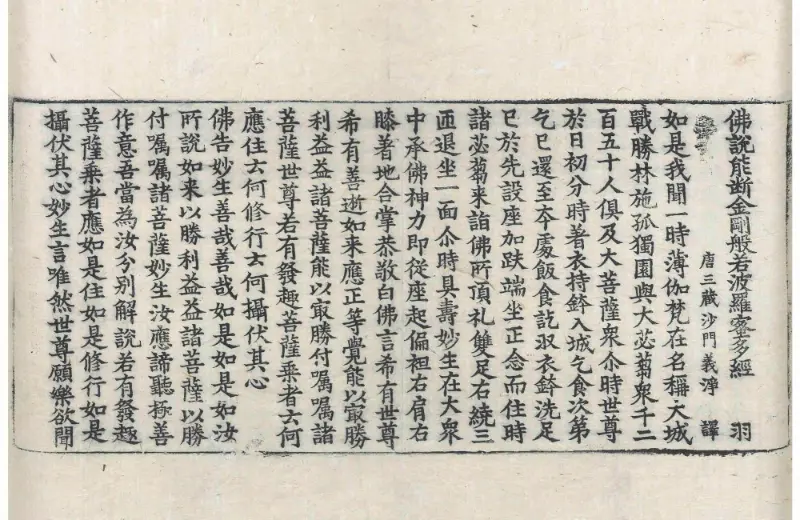 佛說能断金剛般若波羅蜜多經 羽
唐三藏沙門義淨 譯
如是我聞一時薄伽梵在名稱大城
戰勝林施孤獨園與大苾蒭衆千二
百五十人俱及大菩薩衆尒時世尊
於日初分時著衣持鉢入城乞食次第
乞已還至夲處飯食訖収衣鉢洗足
已於先設座加趺端坐正念而住時
諸苾蒭来詣佛所頂礼雙足右繞三
匝退坐一面尒時具壽妙生在大衆
中承佛神力即從座起偏袒右肩右
膝著地合掌恭敬白佛言希有世尊
希有善逝如来應正等覺能以㝡勝
利益益諸菩薩能以㝡勝付囑囑諸
菩薩世尊若有發趣菩薩乗者云何
應住云何修行云何攝伏其心
佛告妙生善哉善哉如是如是如汝
所說如来以勝利益益諸菩薩以勝
付囑囑諸菩薩妙生汝應諦聽極善
作意吾當為汝分別解說若有發趣
菩薩乗者應如是住如是修行如是
攝伏其心妙生言唯然世尊願樂欲聞